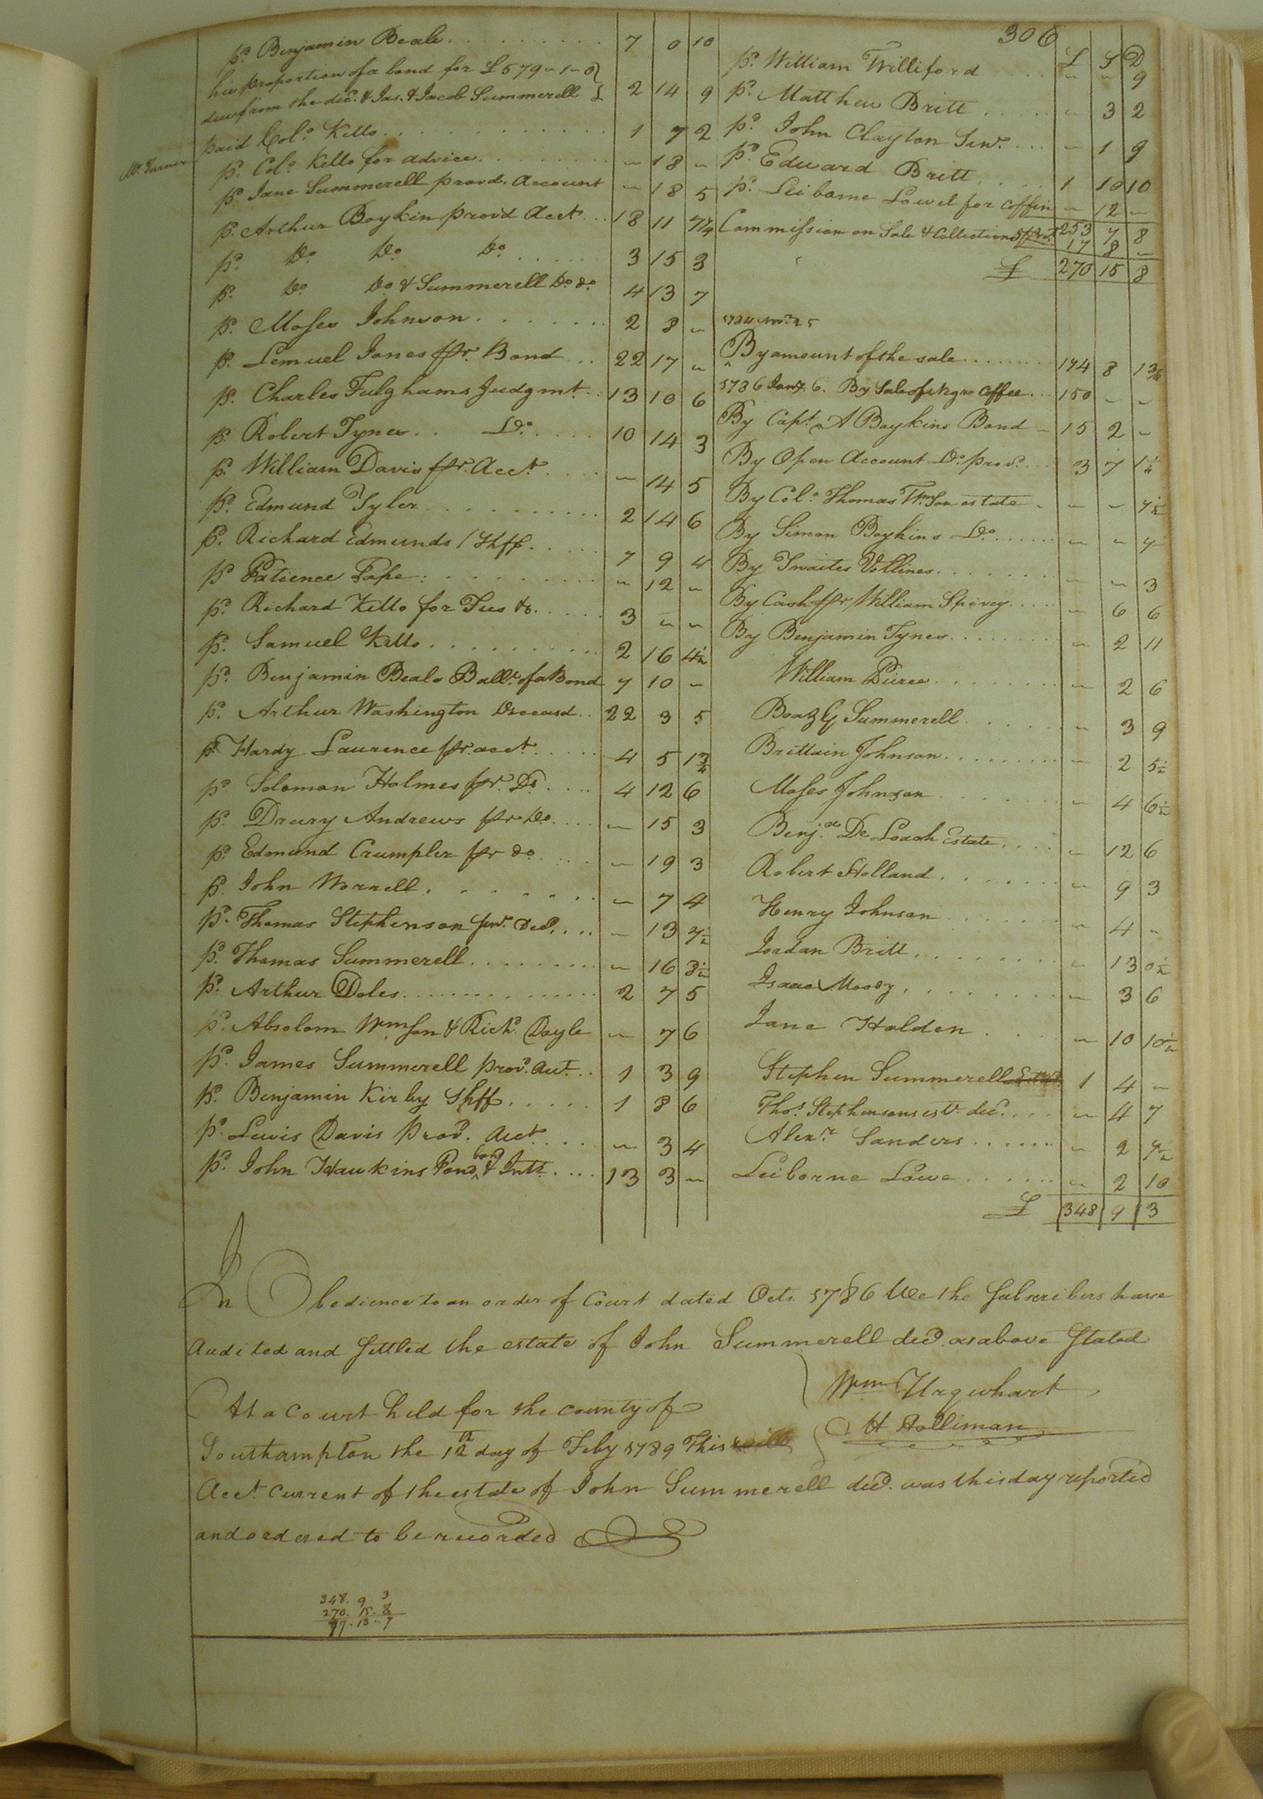 306
pd. Benjamin Beale . . . 7 0 10
his proportion of a bond for £579-1-0
due from the decd. & Jas. & Jacob Summerell 2 14 9
paid Colo. Kello . . . 1 7 2
pd. Colo. Kello for advice . . . - 18 -
pd. Jane Summerell provd. Account - 18 5
pd. Arthur Boykin provd Acct . . . 18 11 7¼
pd. Do Do Do . . . 3 15 3
pd. Do Do & Summerell Do Do 4 13 7
pd. Moses Johnson . . . 2 8 -
pd. Lemuel Jones pr. Bond . . . 22 17 -
pd. Charles Fulghams Judgmt. . . 13 10 6
pd. Robert Tynes . . Do . . . 10 14 3
pd. William Davis pr. Acct . . . - 14 5
pd. Edmund Tyler . . . 2 14 6
pd. Richard Edmunds Shff . . . 7 9 4
pd. Patience Pope . . . - 12 -
pd. Richard Kello for Fees &c. . . . 3 - -
pd. Samuel Kello . . . 2 16 4½
pd. Benjamin Beale Balle. of a Bond 7 10 -
pd. Arthur Washington Deceasd . . 22 3 5
pd. Hardy Laurence pr. acct . . . 4 5 1¾
pd. Solomon Holmes pr. Do . . . 4 12 6
pd. Drury Andrews pr Do . . . - 15 3
pd. Edmund Crumpler pr do . . . - 19 3
pd. John Worrell . . . - 7 4
pd. Thomas Stephenson Senr. Decd. . . . - 13 7½
pd. Thomas Summerell . . . - 16 3½
pd. Arthur Doles . . . 2 7 5
pd. Absolom Wmson & Richd. Dayle - 7 6
pd. James Summerell prov. acct . . 1 3 9
pd. Benjamin Kirby Shff . . . 1 8 6
pd. Lewis Davis Provd. acct . . . - 3 4
pd. John Hawkins bond & Intt . . . 13 3 -
£ S D
pd. William Williford - - 9
pd. Matthew Britt . . . - 3 2
pd. John Clayton Senr. . . . - 1 9
pd. Edward Britt . . . 1 10 10
pd. Leiborne Lowe for coffin - 12 -
253 7 8
Commission on Sale & Collections 5 pr Ct 17 8 -
£ 270 15 8
1784 Novr. 25
By amount of the sale . . . 174 8 1¾
1786 Jany. 6. By Sale of Negro Coffee . . . 150 - -
By Capt. A Boykins Bond - 15 2 -
By Open Account Do prov. . . . 3 7 1½
By Colo. Thomas Wmson estate . - - 7½
By Simon Boykins Do . . . - - 7
By Twaites Vollines . . . - - 3
By Cash pr. William Spivey . . . - 6 6
By Benjamin Tynes . . . - 2 11
William Pierce . . . - 2 6
Boaz G Summerell . . . - 3 9
Brittain Johnson . . . - 2 5½
Moses Johnson . . . - 4 6½
Benja. De Loach Estate . . . - 12 6
Robert Holland . . . - 9 3
Henry Johnson . . . - 4 -
Jordan Britt . . . - 13 0½
Isaac Moody . . . - 3 6
Jane Holden . . . - 10 10½
Stephen Summerell 1 4 -
Thos. Stephensons est. decd. . . . - 4 7
Alexr. Sanders . . . - 2 7½
Leiborne Lowe . . . - 2 10
£ 348 9 3
In Obedience to an order of Court dated Octr. 1786 We the Subscribers have
audited and settled the estate of John Summerell decd. as above Stated
Wm Urquhart
H Holliman
At a Court held for the county of
Southampton the 12th day of Feby 1789 This
Acct. current of the estate of John Summerell decd. was this day reported
and ordered to be recorded
348. 9. 3
270. 15. 8
77. 13. 7